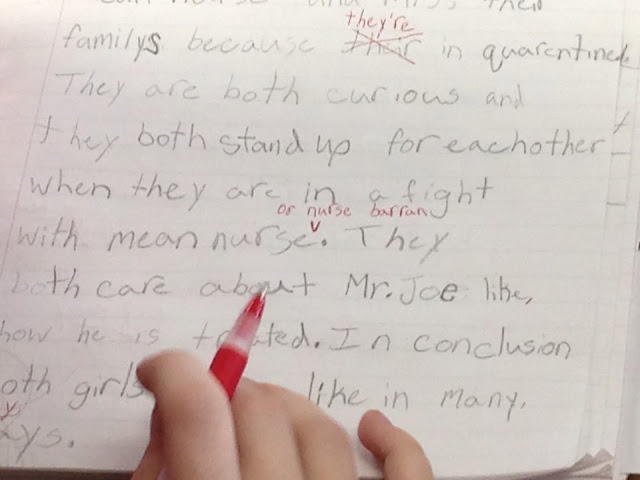 their
they're
familys because their in quarentined
They are both curious and
they both stand up for eachother
when they are in a fight
or nurse barran
with mean nurse. They
both care about Mr. Joe like,
how he is treated. In conclusion
oth girls like in many,
y
ays.